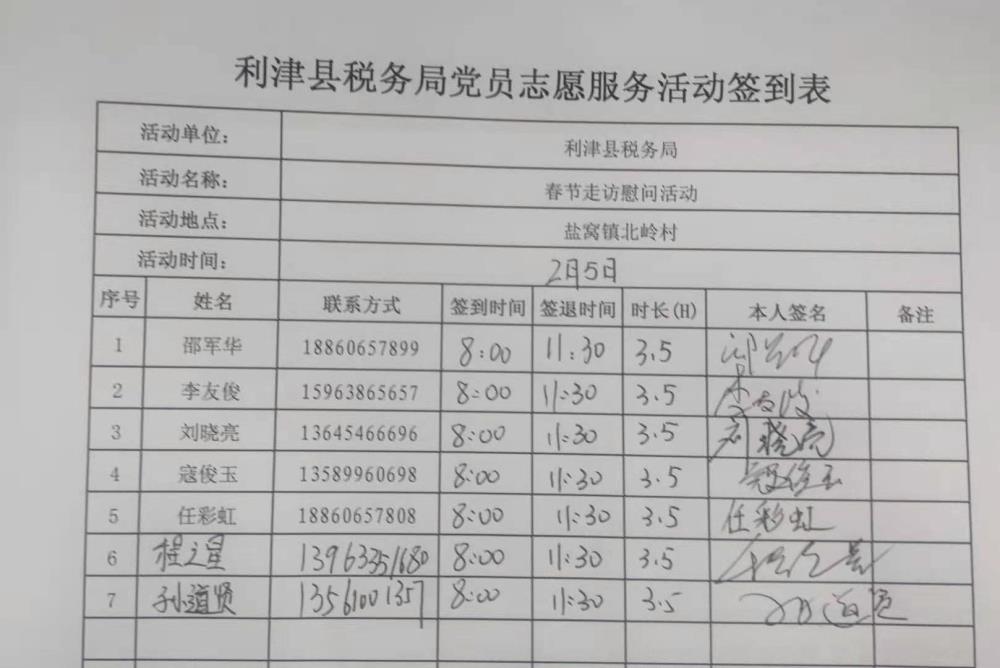 利津县税务局党员志愿服务活动签到表
活动单位： 利津县税务局
活动名称： 春节走访慰问活动
活动地点： 盐窝镇北岭村
活动时间： 2月5日
序号 姓名 联系方式 签到时间 签退时间 时长(H) 本人签名 备注
1 邵军华 18860657899 8:00 11:30 3.5
2 李友俊 15963865657 8:00 11:30 3.5 李友俊
3 刘晓亮 13645466696 8:00 11:30 3.5 刘晓亮
4 寇俊玉 13589960698 8:00 11:30 3.5 寇俊玉
5 任彩虹 18860657808 8:00 11:30 3.5 任彩虹
6 程之星 13963351680 8:00 11:30 3.5
7 孙道贤 13561001357 8:00 11:30 3.5 孙道贤